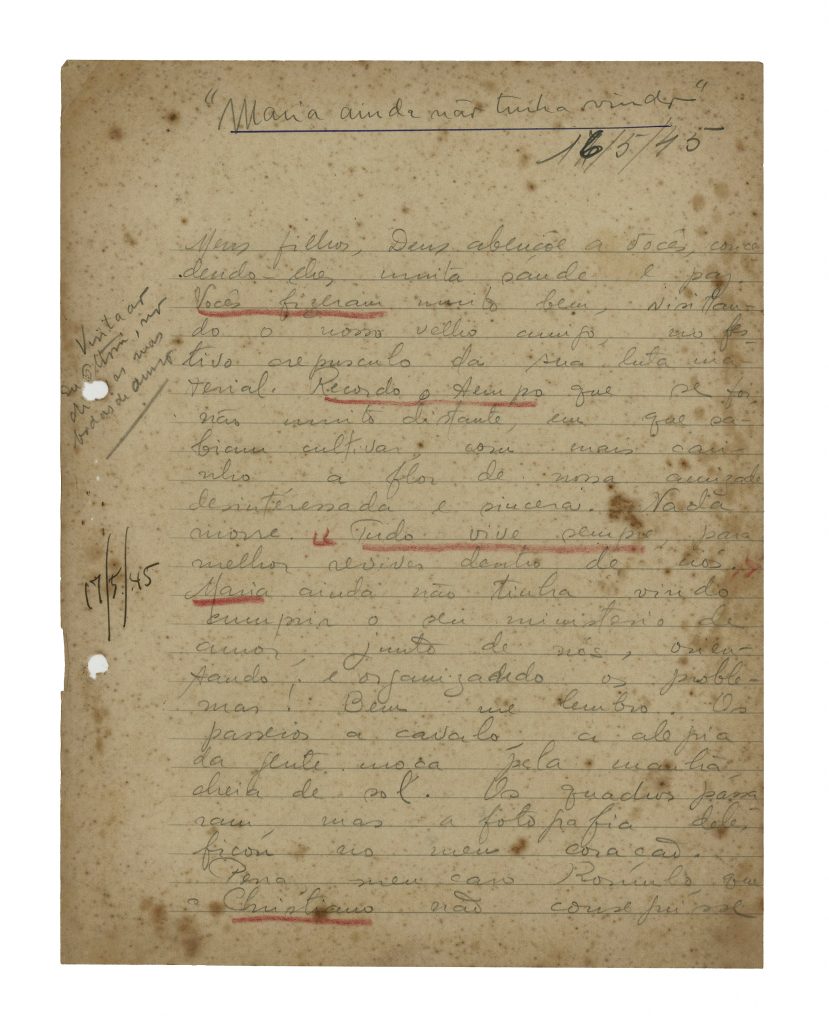 "Maria ainda não tinha vindo"
16/5/45
Meus filhos, Deus abençõe a vocês, conce
dendo-lhes muita saúde e paz.
Vocês fizeram muito bem, visitan-
do o nosso velho amigo, no fes-
tivo crepusculo da sua luta ma-
terial. Recordo o tempo que se foi
não muito distante, em que sa-
biam cultivar, com mais cari-
nho a flor de nossa amizade
desinteressada e sincera. Nada
morre. Tudo vive sempre, para
melhor reviver dentro de nós.
Maria ainda não tinha vindo
cumprir o seu ministerio de
amor junto de nós, orien-
tando, e organizando os proble-
mas! Bem me lembro. Os
passeios a cavalo, a alegria
da gente moça pela manhã
cheia de sol. Os quadros passa
ram mas a fotografia deles
ficou no meu coração.
Pena meu caro Romulo, que
o Christiano não conseguisse
Visita ao
no
dia
bodas de
17/5/45